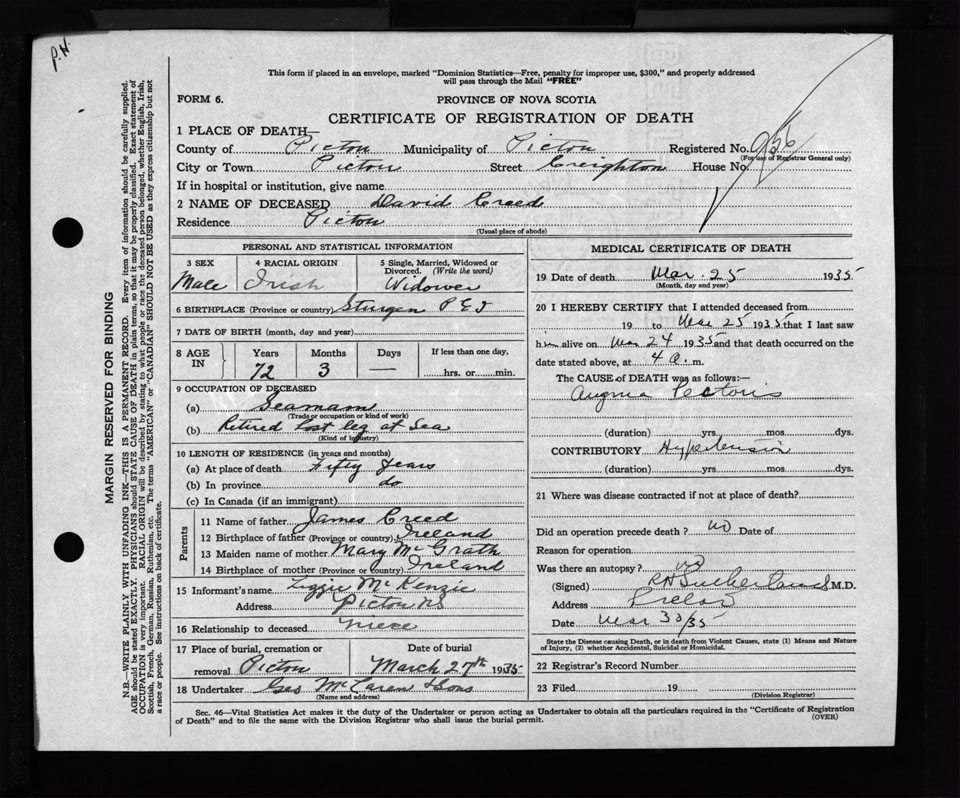 P.N.
This form if placed in an envelope, marked "Dominion Statistics—Free, penalty for improper use, $300," and properly addressed
will pass through the Mail "FREE"
FORM 6.
PROVINCE OF NOVA SCOTIA
CERTIFICATE OF REGISTRATION OF DEATH
1 PLACE OF DEATH—
County of Picton Municipality of Picton Registered No. 956
(For use of Registrar General only)
City or Town Picton Street Creighton House No.
If in hospital or institution, give name
2 NAME OF DECEASED David Creed
Residence Picton
(Usual place of abode)
PERSONAL AND STATISTICAL INFORMATION
3 SEX 4 RACIAL ORIGIN 5 Single, Married, Widowed or Divorced. (Write the word)
Male Irish Widower
6 BIRTHPLACE (Province or country) Sturgen P E I
7 DATE OF BIRTH (month, day and year)
8 AGE IN Years Months Days If less than one day,
72 3 — hrs. or min.
9 OCCUPATION OF DECEASED
(a) Seaman
(Trade or occupation or kind of work)
(b) Retired Lost leg at Sea
(Kind of industry)
10 LENGTH OF RESIDENCE (in years and months)
(a) At place of death Fifty Years
(b) In province do
(c) In Canada (if an immigrant)
Parents
11 Name of father James Creed
12 Birthplace of father (Province or country) Ireland
13 Maiden name of mother Mary McGrath
14 Birthplace of mother (Province or Country) Ireland
15 Informant's name Lizzie McKenzie
Address Picton NS
16 Relationship to deceased Niece
17 Place of burial, cremation or removal Picton Date of burial March 27th 1935
18 Undertaker Geo McLaren & Sons
(Name and address)
MEDICAL CERTIFICATE OF DEATH
19 Date of death Mar. 25 1935
(Month, day and year)
20 I HEREBY CERTIFY that I attended deceased from
19 to Mar 25 1935 that I last saw
him alive on Mar 24 1935 and that death occurred on the
date stated above, at 4 a. m.
The CAUSE of DEATH was as follows:—
Angina Pectoris
(duration) yrs. mos. dys.
CONTRIBUTORY Hypertension
(duration) yrs. mos. dys.
21 Where was disease contracted if not at place of death?
Did an operation precede death? no Date of
Reason for operation
Was there an autopsy? no
(Signed) M.D.
Address
Date Mar 30/35
State the Disease causing Death, or in death from Violent Causes, state (1) Means and Nature
of Injury, (2) whether Accidental, Suicidal or Homicidal.
22 Registrar's Record Number
23 Filed 19
(Division Registrar)
Sec. 46—Vital Statistics Act makes it the duty of the Undertaker or person acting as Undertaker to obtain all the particulars required in the "Certificate of Registration
of Death" and to file the same with the Division Registrar who shall issue the burial permit.
(OVER)
MARGIN RESERVED FOR BINDING
N.B.—WRITE PLAINLY WITH UNFADING INK—THIS IS A PERMANENT RECORD. Every item of information should be carefully supplied.
AGE should be stated EXACTLY. PHYSICIANS should STATE CAUSE OF DEATH in plain terms, so that it may be properly classified. Exact statement of
OCCUPATION is very important. RACIAL ORIGIN will be described by stating to what people or race the deceased person belonged, whether English, Irish,
Scottish, French, German, Russian, Ruthenian, etc. The terms "AMERICAN" or "CANADIAN" SHOULD NOT BE USED as they express citizenship but not
a race or people. See instructions on back of certificate.